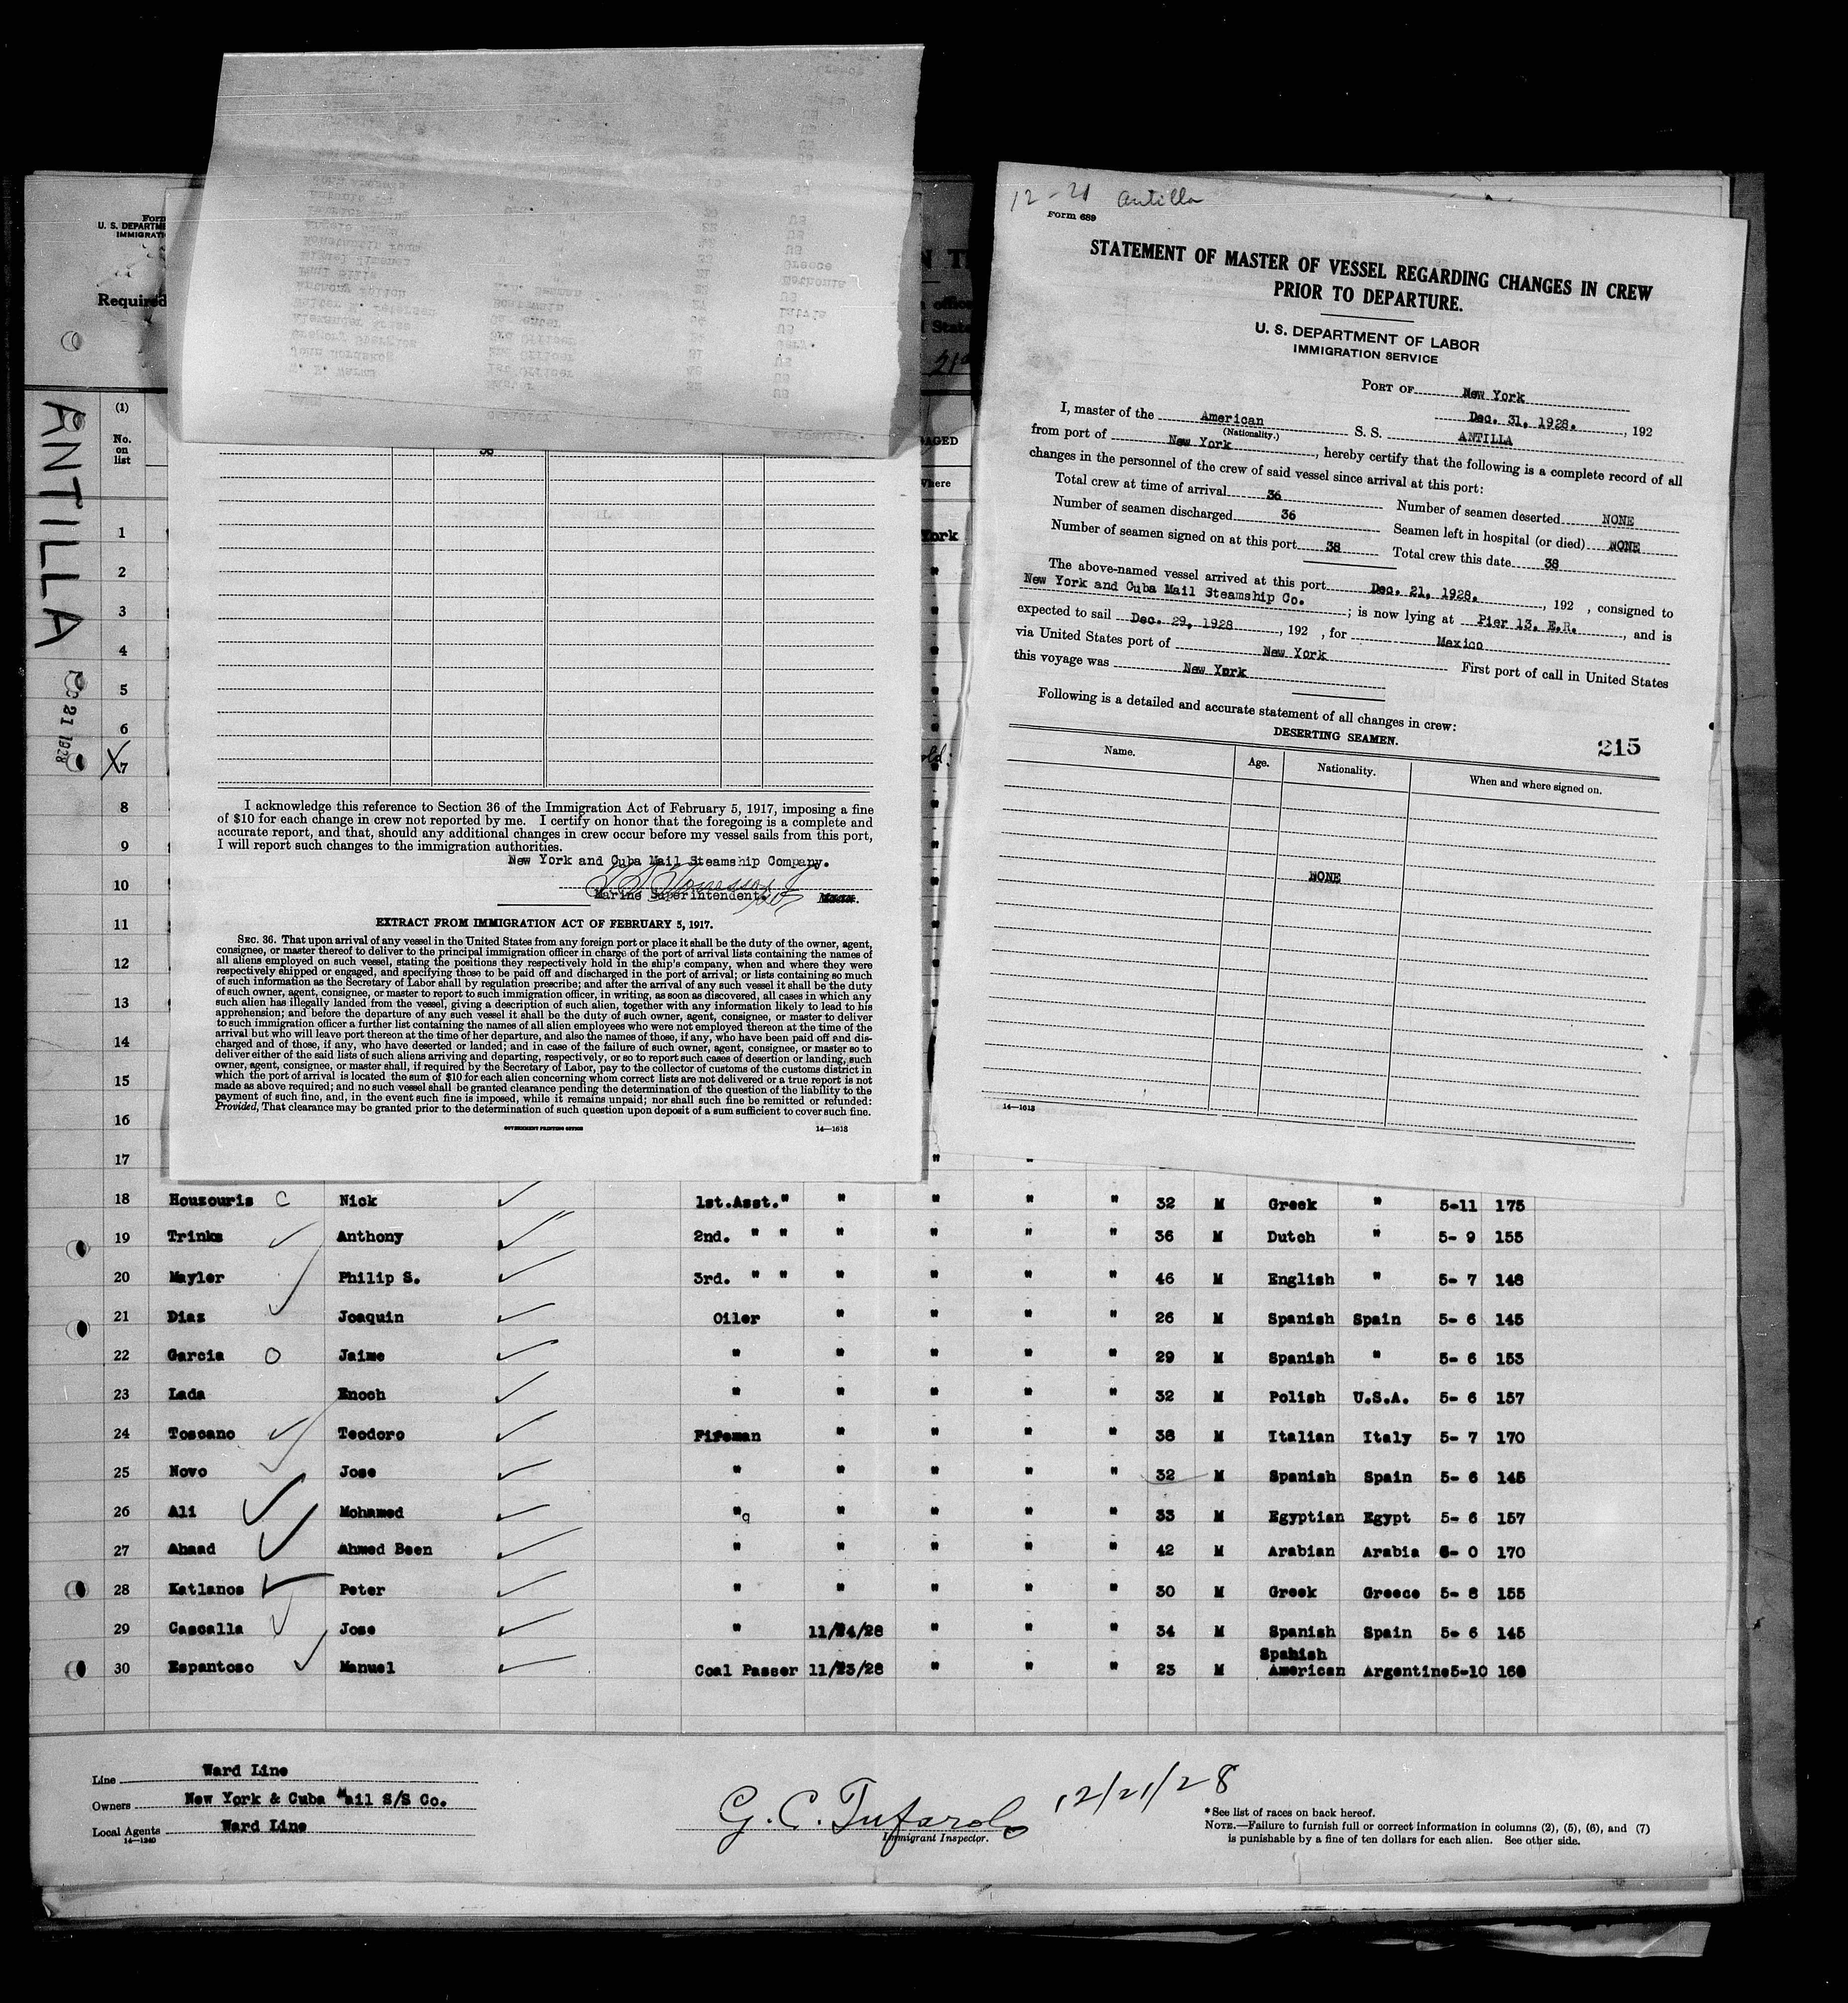 12-21 Antilla
Form 689
STATEMENT OF MASTER OF VESSEL REGARDING CHANGES IN CREW
PRIOR TO DEPARTURE.
U. S. DEPARTMENT OF LABOR
IMMIGRATION SERVICE
PORT OF New York
Dec. 31, 1928. , 192
I, master of the American S. S. ANTILLA
(Nationality.)
from port of New York , hereby certify that the following is a complete record of all
changes in the personnel of the crew of said vessel since arrival at this port:
Total crew at time of arrival 36 Number of seamen deserted NONE
Number of seamen discharged 36 Seamen left in hospital (or died) NONE
Number of seamen signed on at this port 38 Total crew this date 38
The above-named vessel arrived at this port Dec. 21, 1928. , 192 , consigned to
New York and Cuba Mail Steamship Co. ; is now lying at Pier 13, E.R. , and is
expected to sail Dec. 29, 1928 , 192 , for Mexico
via United States port of New York First port of call in United States
this voyage was New York
Following is a detailed and accurate statement of all changes in crew:
DESERTING SEAMEN.
215
Name. Age. Nationality. When and where signed on.
NONE
14—1613
Form
U. S. DEPARTME
IMMIGRATI
Required
ANTILLA
21 1928
(1)
No.
on
list
1
2
3
4
5
6
7
8
9
10
11
12
13
14
15
16
17
I acknowledge this reference to Section 36 of the Immigration Act of February 5, 1917, imposing a fine
of $10 for each change in crew not reported by me. I certify on honor that the foregoing is a complete and
accurate report, and that, should any additional changes in crew occur before my vessel sails from this port,
I will report such changes to the immigration authorities.
New York and Cuba Mail Steamship Company.
Marine Superintendent.
EXTRACT FROM IMMIGRATION ACT OF FEBRUARY 5, 1917.
SEC. 36. That upon arrival of any vessel in the United States from any foreign port or place it shall be the duty of the owner, agent,
consignee, or master thereof to deliver to the principal immigration officer in charge of the port of arrival lists containing the names of
all aliens employed on such vessel, stating the positions they respectively hold in the ship's company, when and where they were
respectively shipped or engaged, and specifying those to be paid off and discharged in the port of arrival; or lists containing so much
of such information as the Secretary of Labor shall by regulation prescribe; and after the arrival of any such vessel it shall be the duty
of such owner, agent, consignee, or master to report to such immigration officer, in writing, as soon as discovered, all cases in which any
such alien has illegally landed from the vessel, giving a description of such alien, together with any information likely to lead to his
apprehension; and before the departure of any such vessel it shall be the duty of such owner, agent, consignee, or master to deliver
to such immigration officer a further list containing the names of all alien employees who were not employed thereon at the time of the
arrival but who will leave port thereon at the time of her departure, and also the names of those, if any, who have been paid off and dis-
charged and of those, if any, who have deserted or landed; and in case of the failure of such owner, agent, consignee, or master so to
deliver either of the said lists of such aliens arriving and departing, respectively, or so to report such cases of desertion or landing, such
owner, agent, consignee, or master shall, if required by the Secretary of Labor, pay to the collector of customs of the customs district in
which the port of arrival is located the sum of $10 for each alien concerning whom correct lists are not delivered or a true report is not
made as above required; and no such vessel shall be granted clearance pending the determination of the question of the liability to the
payment of such fine, and, in the event such fine is imposed, while it remains unpaid; nor shall such fine be remitted or refunded:
Provided, That clearance may be granted prior to the determination of such question upon deposit of a sum sufficient to cover such fine.
GOVERNMENT PRINTING OFFICE 14—1613
18 Houzouris C Nick 1st.Asst." " " " " 32 M Greek " 5-11 175
19 Trinks Anthony 2nd. " " " " " " 36 M Dutch " 5- 9 155
20 Mayler Philip S. 3rd. " " " " " " 46 M English " 5- 7 148
21 Diaz Joaquin Oiler " " " " 26 M Spanish Spain 5- 6 145
22 Garcia O Jaime " " " " " 29 M Spanish " 5- 6 153
23 Lada Enoch " " " " " 32 M Polish U.S.A. 5- 6 157
24 Toscano Teodoro Fireman " " " " 38 M Italian Italy 5- 7 170
25 Novo Jose " " " " " 32 M Spanish Spain 5- 6 145
26 Ali Mohamed " " " " " 33 M Egyptian Egypt 5- 6 157
27 Ahaad Ahmed Been " " " " " 42 M Arabian Arabia 6- 0 170
28 Katlanos Peter " " " " " 30 M Greek Greece 5- 8 155
29 Cascalla Jose " 11/24/28 " " " 34 M Spanish Spain 5- 6 145
30 Espantoso Manuel Coal Passer 11/23/28 " " " 23 M Spanish American Argentine 5-10 160
Line Ward Line
Owners New York & Cuba Mail S/S Co.
Local Agents Ward Line
14—1240
G. C. Tufarolo 12/21/28
Immigrant Inspector.
*See list of races on back hereof.
NOTE.—Failure to furnish full or correct information in columns (2), (5), (6), and (7)
is punishable by a fine of ten dollars for each alien. See other side.